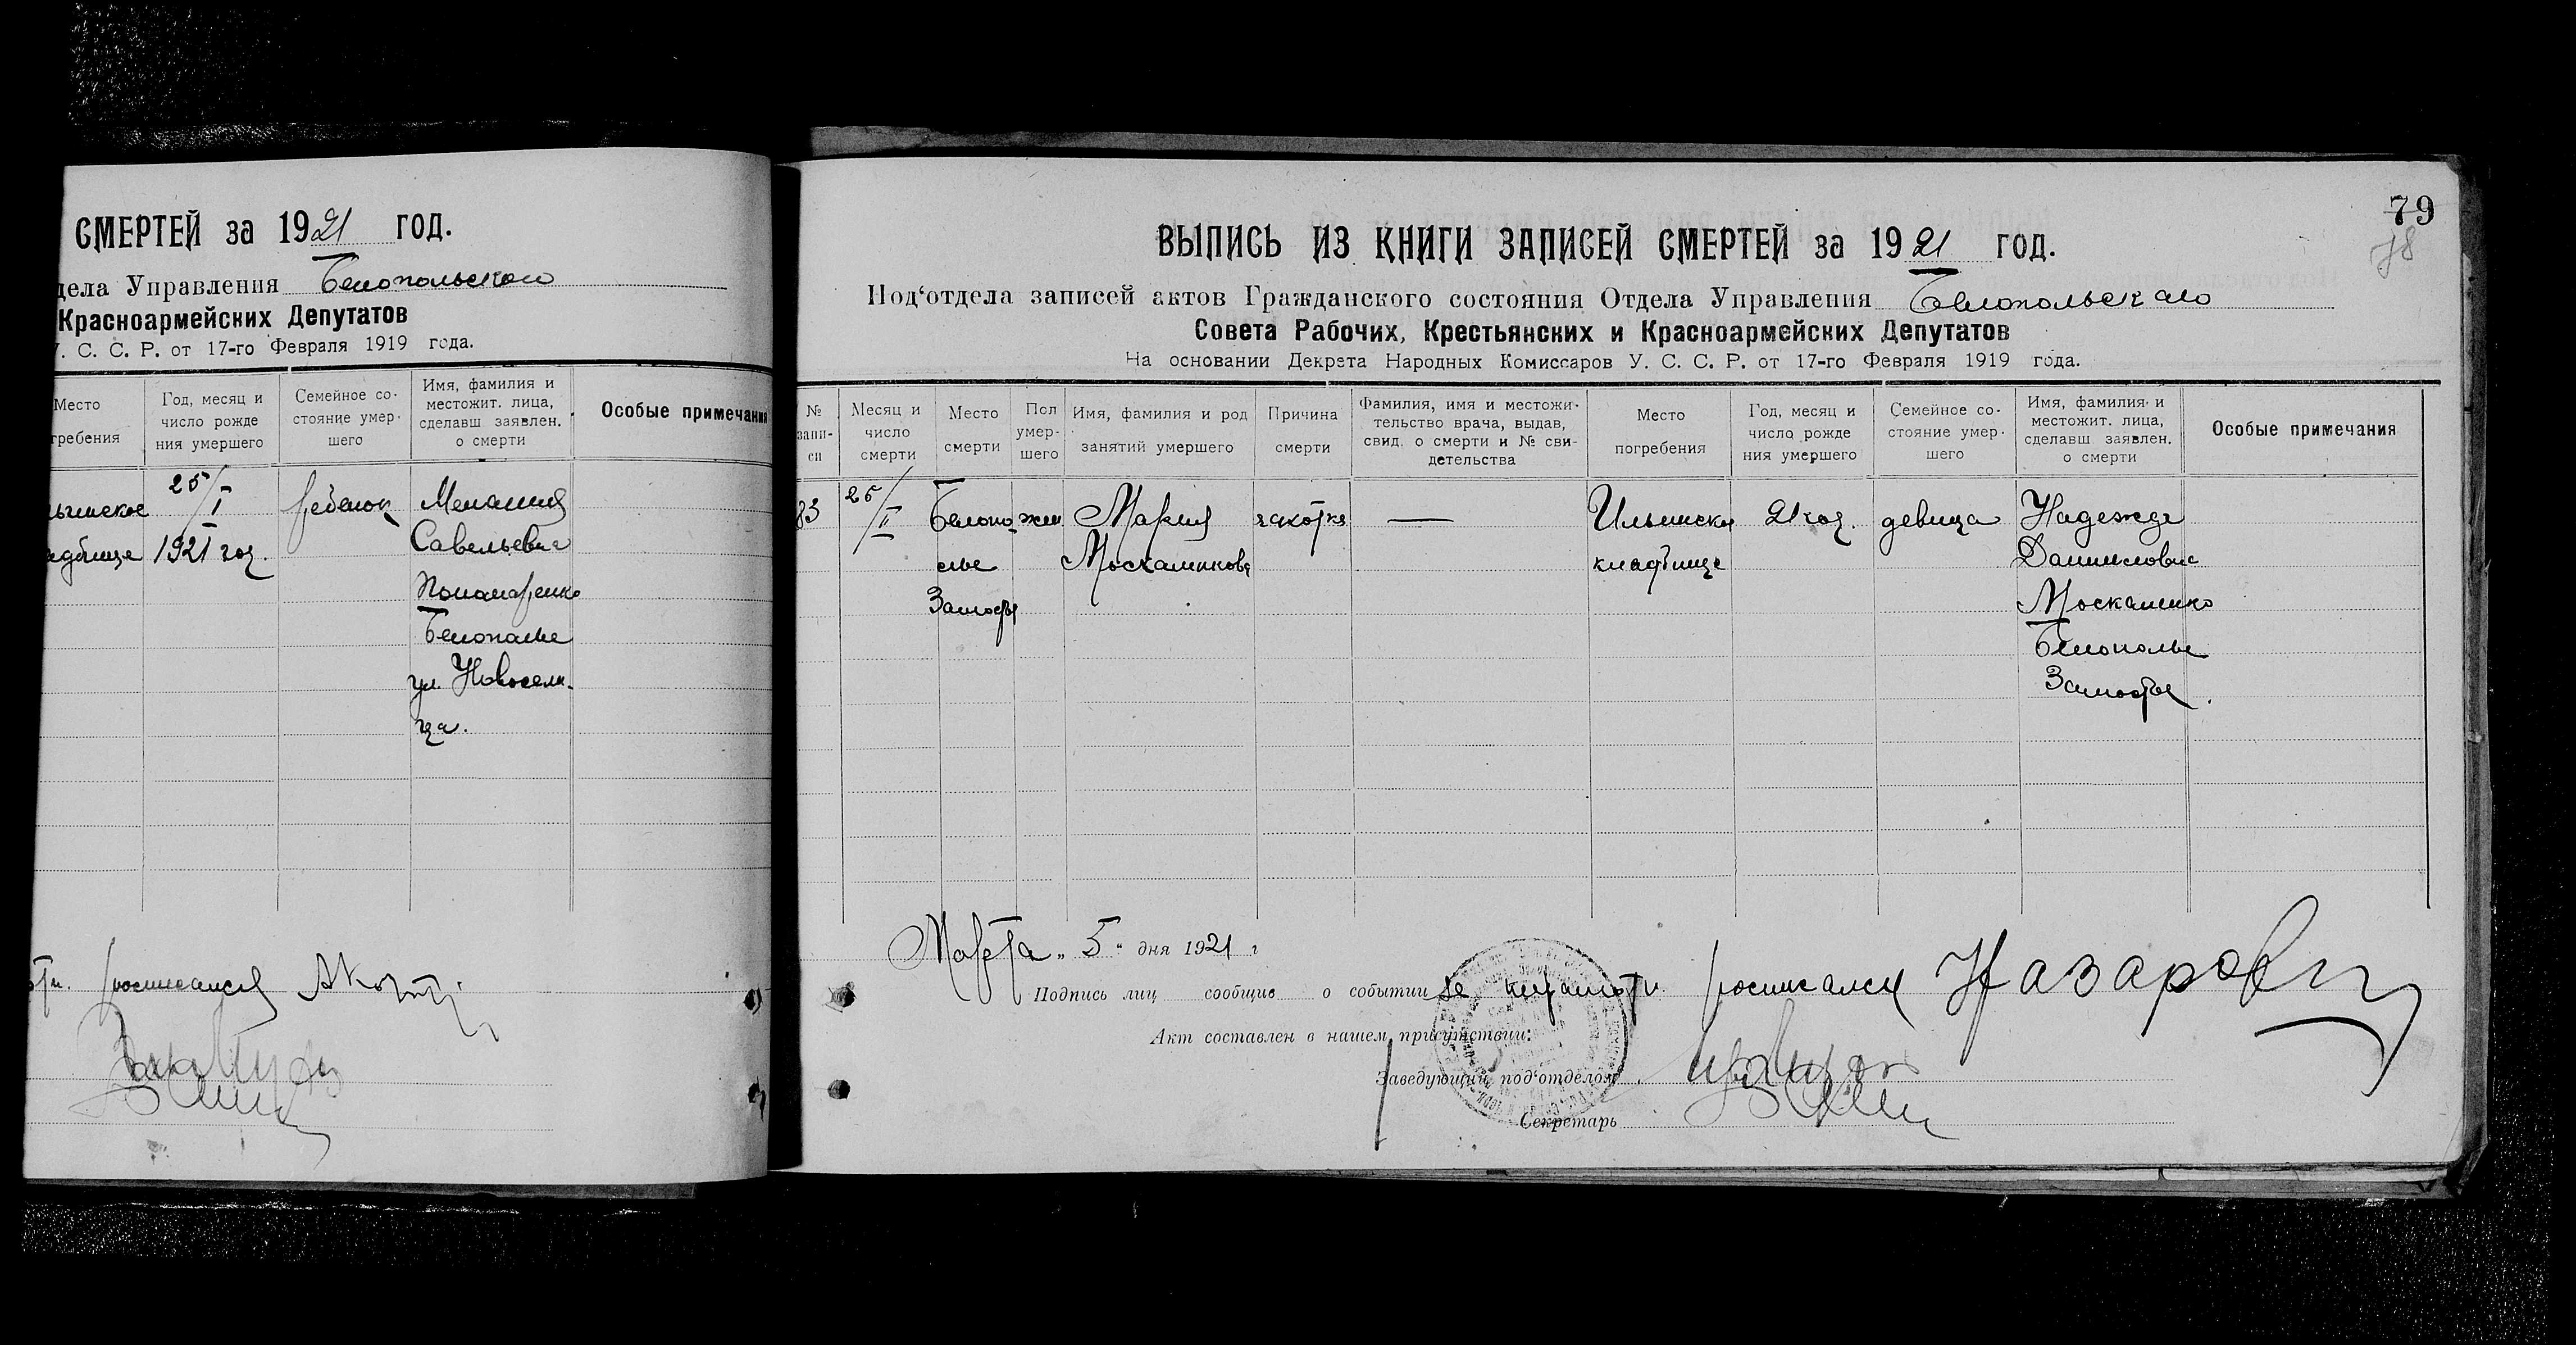 СМЕРТЕЙ за 1921 год.
дела Управления Белопольского
Красноармейских Депутатов
У. С. С. Р. от 17-го Февраля 1919 года.
Место
гребения
Год, месяц и
число рожде
ния умершего
Семейное со-
стояние умер-
шего
Имя, фамилия и
местожит. лица,
сделавш заявлен.
о смерти
Особые примечания
25/I
1921 год.
ребенок
Мелания
Савельевна
Пономаренко
Белополье
ул. Новосели-
ца.
росписался
79
78
ВЫПИСЬ ИЗ КНИГИ ЗАПИСЕЙ СМЕРТЕЙ за 1921 год.
Под‘отдела записей актов Гражданского состояния Отдела Управления Белопольскаго
Совета Рабочих, Крестьянских и Красноармейских Депутатов
На основании Декрета Народных Комиссаров У. С. С. Р. от 17-го Февраля 1919 года.
№
запи-
си
Месяц и
число
смерти
Место
смерти
Пол
умер-
шего
Имя, фамилия и род
занятий умершего
Причина
смерти
Фамилия, имя и местожи-
тельство врача, выдав,
свид. о смерти и № сви-
детельства
Место
погребения
Год, месяц и
число рожде
ния умершего
Семейное со-
стояние умер-
шего
Имя, фамилия и
местожит. лица,
сделавш заявлен.
о смерти
Особые примечания
83
25/II
Белопо-
лье
Замостье
жен
Мария
Москаленкова
чахотка
—
Ильинское
кладбище
21 год.
девица
Надежда
Даниловна
Москаленко
Белополье
Замостье.
Марта „ 5 “ дня 1921 г
Подпись лиц сообщив о событии за неграмотн. росписался Назаров
Акт составлен в нашем присутствии:
Заведующий под‘отделом
Секретарь